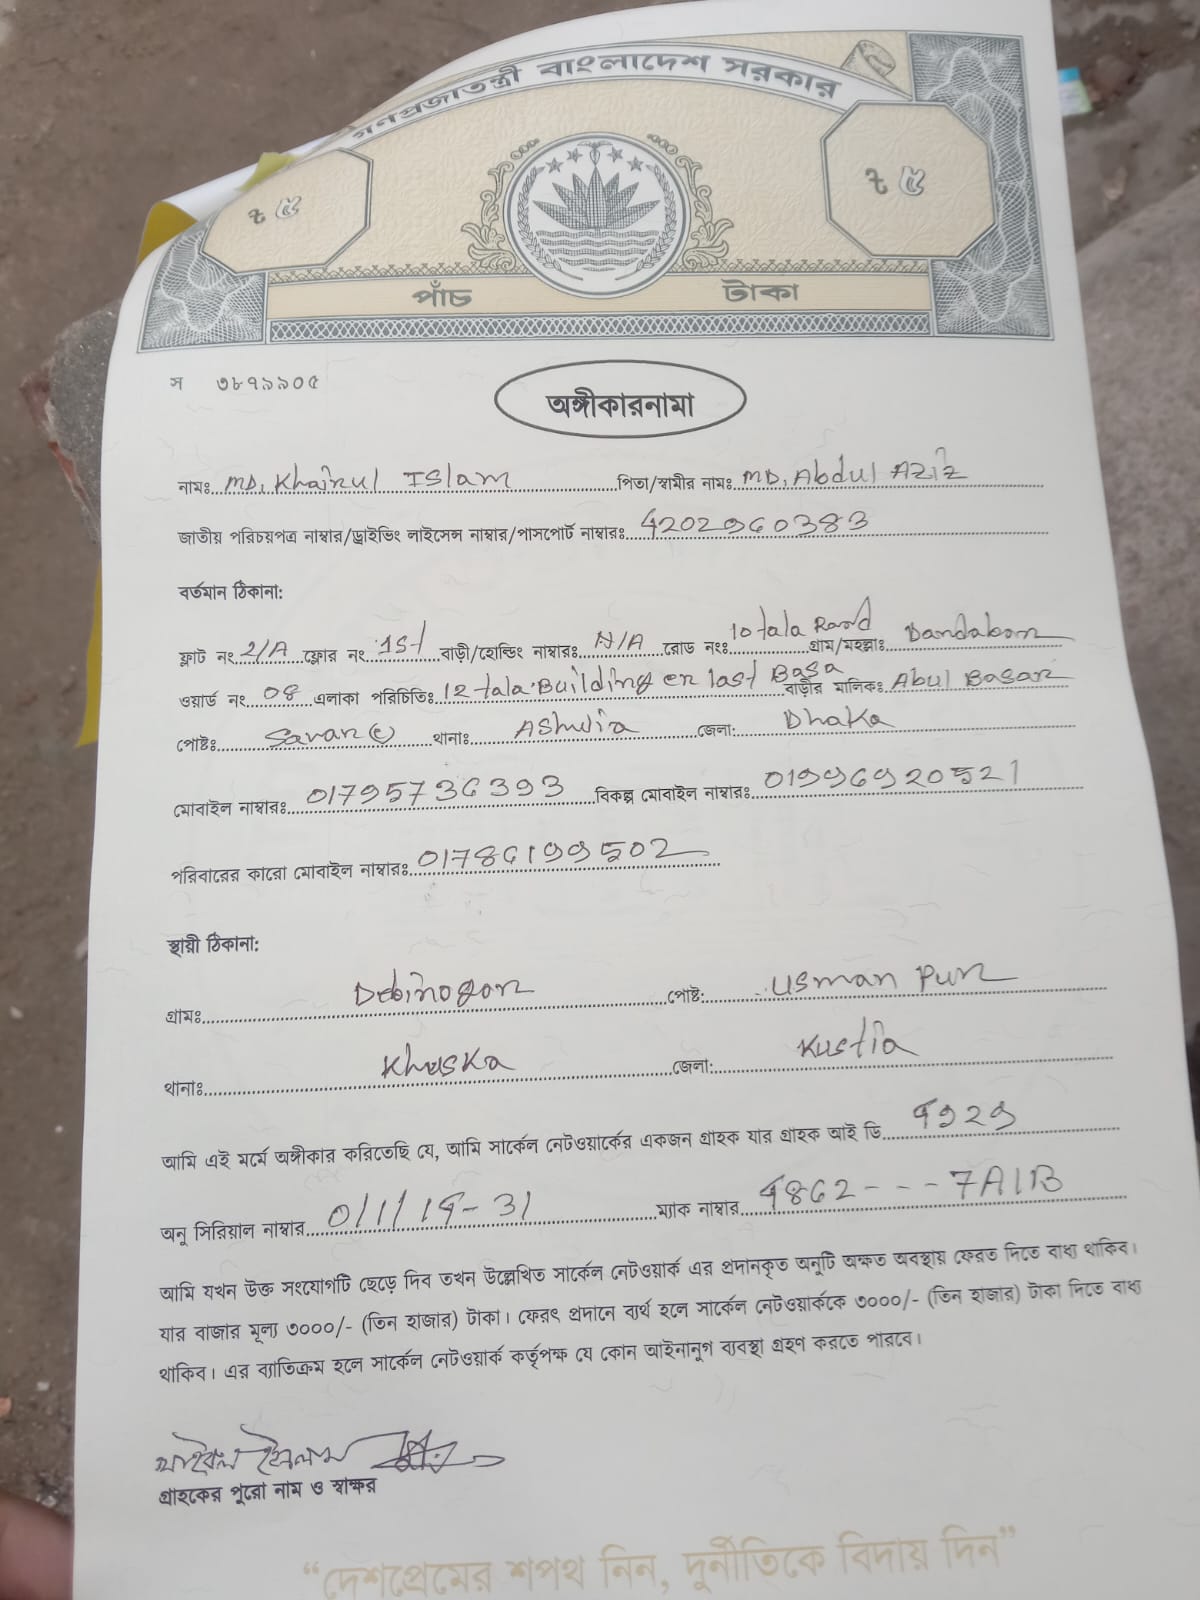 গণপ্রজাতন্ত্রী বাংলাদেশ সরকার
৳ ৫ ৳ ৫
পাঁচ টাকা
স ৩৮৭৯৯০৫
অঙ্গীকারনামা
নামঃ MD. Khairul Islam পিতা/স্বামীর নামঃ MD. Abdul Aziz
জাতীয় পরিচয়পত্র নাম্বার/ড্রাইভিং লাইসেন্স নাম্বার/পাসপোর্ট নাম্বারঃ 4202960383
বর্তমান ঠিকানা:
ফ্লাট নং 2/A ফ্লোর নং 1st বাড়ী/হোল্ডিং নাম্বারঃ N/A রোড নংঃ 10 tala Rood গ্রাম/মহল্লাঃ Dandabor
ওয়ার্ড নং 08 এলাকা পরিচিতিঃ 12 tala Building er last Basa বাড়ীর মালিকঃ Abul Basar
পোষ্টঃ Savar (c) থানাঃ Ashulia জেলা: Dhaka
মোবাইল নাম্বারঃ 01795736393 বিকল্প মোবাইল নাম্বারঃ 01996920521
পরিবারের কারো মোবাইল নাম্বারঃ 01786199502
স্থায়ী ঠিকানা:
গ্রামঃ Debinogor পোষ্ট: Usman Pur
থানাঃ Khoska জেলা: Kustia
আমি এই মর্মে অঙ্গীকার করিতেছি যে, আমি সার্কেল নেটওয়ার্কের একজন গ্রাহক যার গ্রাহক আই ডি
অনু সিরিয়াল নাম্বার 0/1/14-31 ম্যাক নাম্বার 4862---7A1B
আমি যখন উক্ত সংযোগটি ছেড়ে দিব তখন উল্লেখিত সার্কেল নেটওয়ার্ক এর প্রদানকৃত অনুটি অক্ষত অবস্থায় ফেরত দিতে বাধ্য থাকিব।
যার বাজার মূল্য ৩০০০/- (তিন হাজার) টাকা। ফেরৎ প্রদানে ব্যর্থ হলে সার্কেল নেটওয়ার্ককে ৩০০০/- (তিন হাজার) টাকা দিতে বাধ্য
থাকিব। এর ব্যাতিক্রম হলে সার্কেল নেটওয়ার্ক কর্তৃপক্ষ যে কোন আইনানুগ ব্যবস্থা গ্রহণ করতে পারবে।
খাইরুল ইসলাম
গ্রাহকের পুরো নাম ও স্বাক্ষর
“দেশপ্রেমের শপথ নিন, দুর্নীতিকে বিদায় দিন”